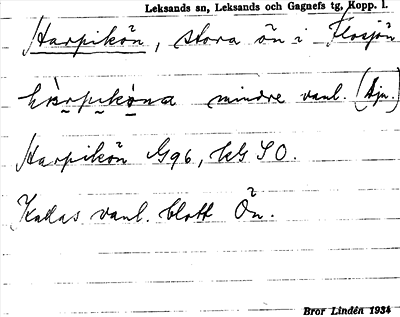 Leksands sn, Leksands och Gagnefs tg, Kopp. l.
Harpikön, stora ön i Flosjön
mindre vanl.
Harpikön G96, kG SO.
Kallas vanl. blott Ön.
Bror Lindén 1934